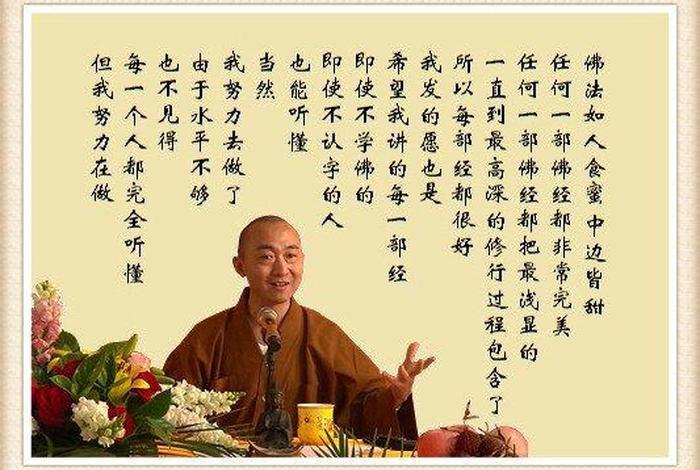 佛法如人食蜜中边皆甜
任何一部佛经都非常完美
任何一部佛经都把最浅显的
一直到最高深的修行过程包含了
所以每部经都很好
我发的愿也是
希望我讲的每一部经
即使不学佛的
即使不认字的人
也能听懂
当然
我努力去做了
由于水平不够
也不见得
每一个人都完全听懂
但我努力在做